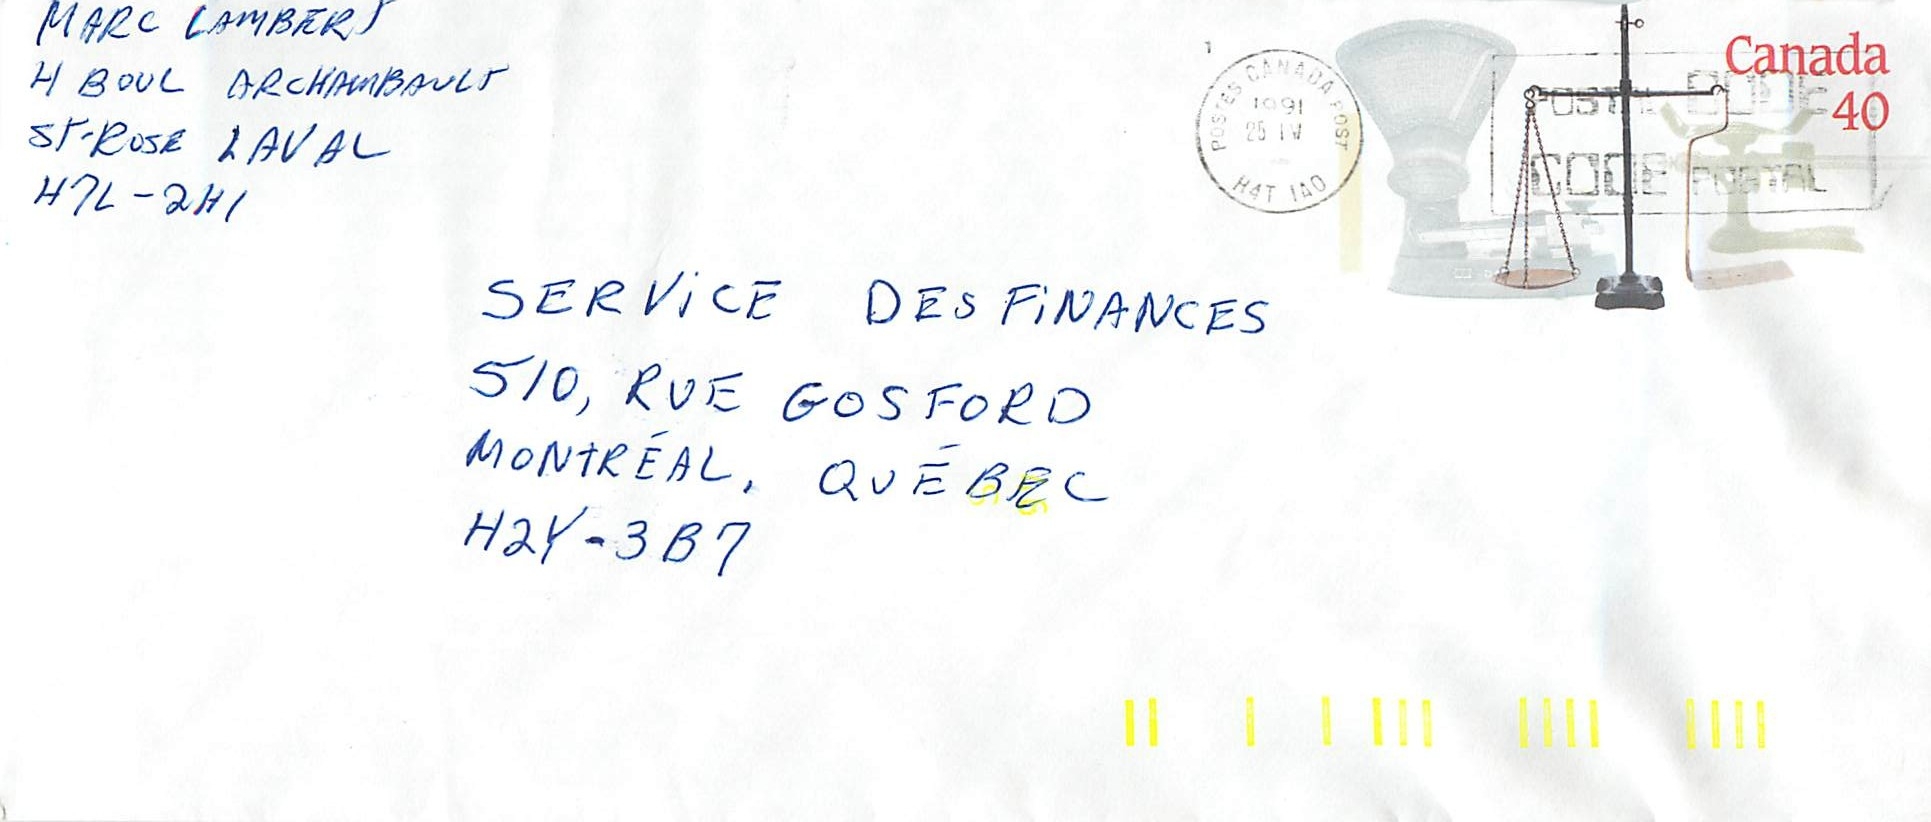 MARC LAMBERT
4 BOUL ARCHAMBAULT
ST-ROSE LAVAL
H7L-2H1
1
POSTES CANADA POST
1991
25 IV
H4T 1A0
Canada
40
POSTAL CODE
CODE POSTAL
SERVICE DES FINANCES
510, RUE GOSFORD
MONTRÉAL, QUÉBEC
H2Y-3B7